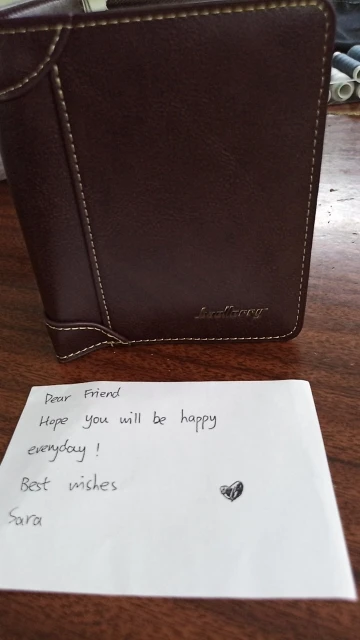 baellerry
Dear Friend
Hope you will be happy
everyday !
Best wishes
Sara